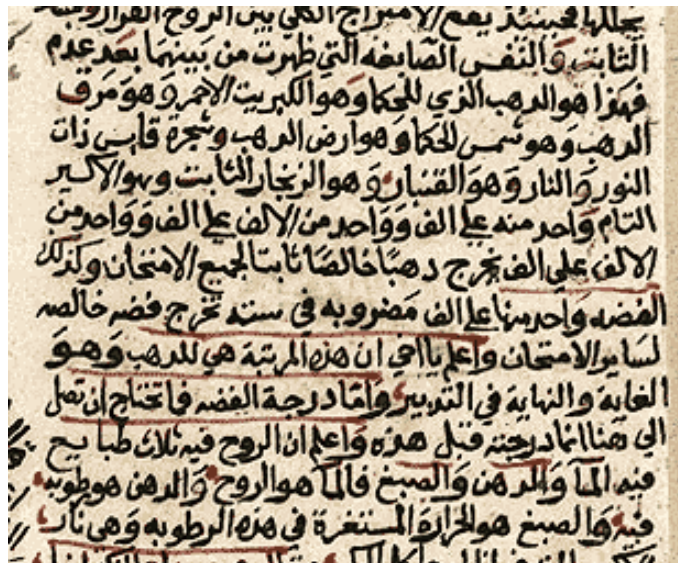 يقع الامتزاج الكلي بين الروح القرار
الثابت والنفس الصابغه التي ظهرت من بينهما بعد عدم
فهذا هو الدهب الذي للحكما وهو الكبريت الاحمر وهو مرق
الدهب وهو شمس الحكما وهو ارض الدهب وشجرة قابس ذات
النور والنار وهو القنبار وهو الزنجار الثابت وهو الاكسير
التام واحد منه على الف وواحد من الالف على الف وواحد من
الالف على الف يخرج دهبا خالصا ثابتا لجميع الامتحان وكذلك
الفضه واحد منها على الف مضروبه في سته تخرج فضه خالصه
لساير الامتحان واعلم يا اخي ان هذه المرتبة هي للدهب وهو
الغاية والنهاية في التدبير واما درجة الفضه فما تحتاج ان تصل
الي هنا انما درجته قبل هذه واعلم ان الروح فيه ثلاث طبايع
فيه الما والدهن والصبغ فالما هو الروح والدهن هو رطوبه
فيه والصبغ هو الحرارة المستقرة في هذه الرطوبه وهي نار